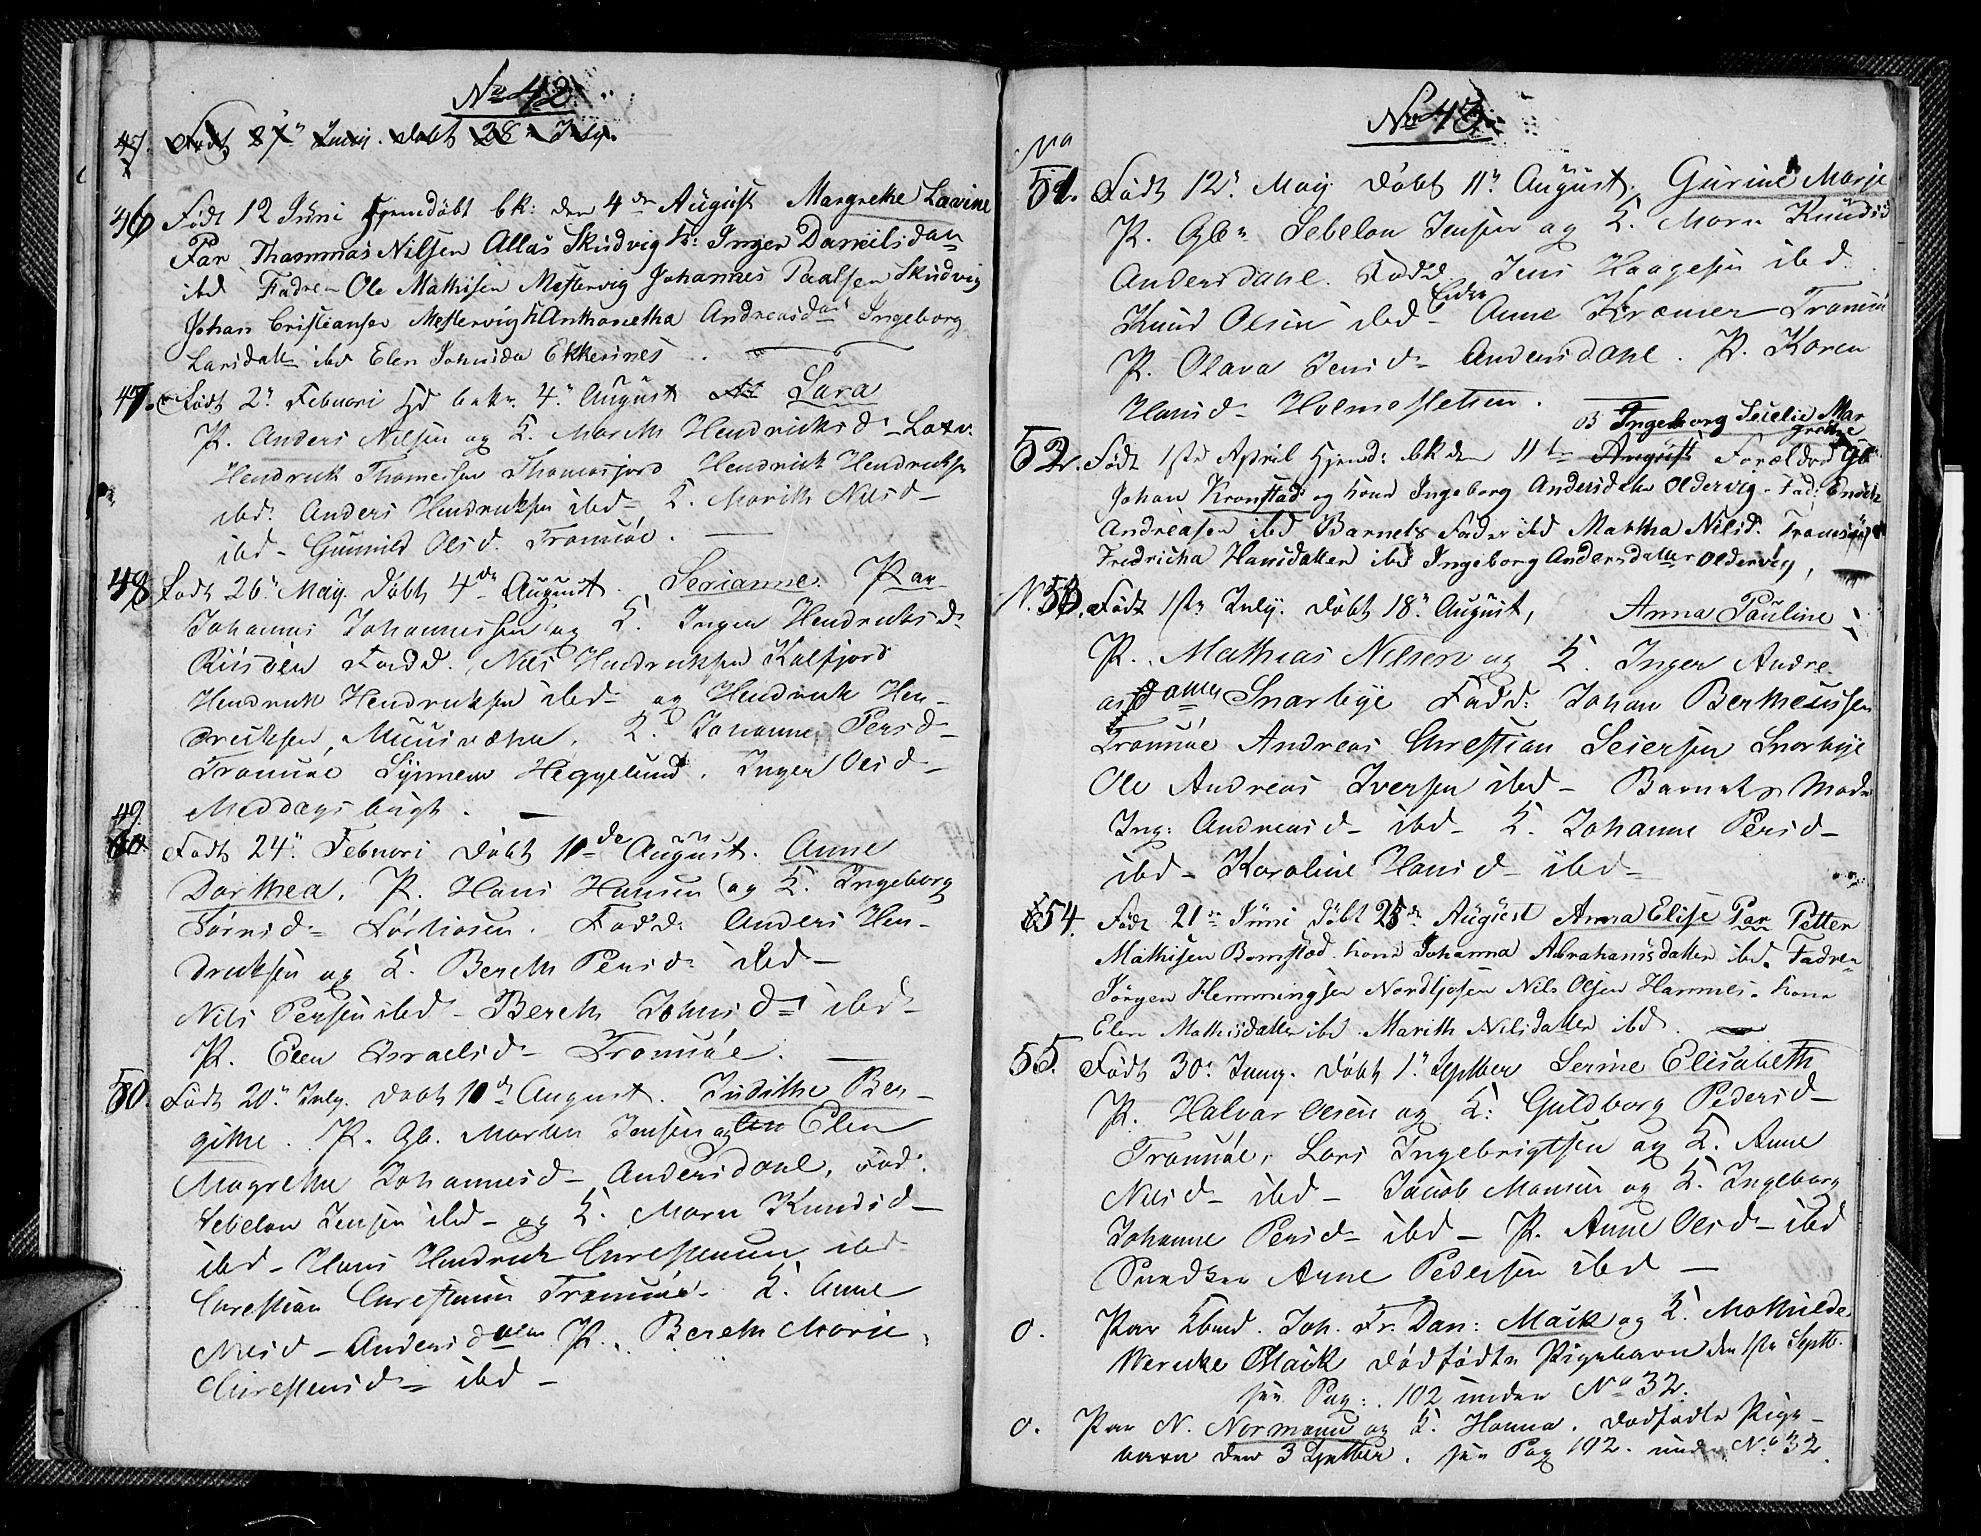 No 42
47. Født 27n Junij. døbt 28n July.
46 Født 12 Juni Hjemdøbt bk: den 4de August Margrethe Lavine
Par Thammas Nilsen Allas Skudvig K: Inger Danielsdan
ibd Fadre Ole Mathisen Mestervig Johannes Paalsen Skudvig
Johan Cristiansen Mestervig K Anthonetha Andreasdat Ingeborg
Larsdatter ibd Elen Johnsda Ekkesnes.
47. Født 2n Februari Hd bekr. 4n August Lara
P. Anders Nilsen og K. Marith Hendriksd
Hendrik Thomessen Thomasjord Hendrich Hendriksen
ibd. Anders Hendriksen ibd K. Marith Nilsd
ibd Gunnild Olsd. Tromsøe.
48 Født 26n May. Døbt 4de August. Serianne. Par
Johannes Johannessen og K. Inger Hendriksd
Riisøen Fadd. Nils Hendriksen Kalfjord
Hendrich Hendriksen ibd og Hendrich Hen-
driksen, K. Johanne Persd
Tromsøe Heggelund. Inger Olsd
Meddagsbugt.
49. Født 24n Februari døbt 10de August. Anne
Dorthea. P. Hans Hansen og K. Ingeborg
Fadd: Anders Hen-
driksen og K. Bereth Persd ibd
Nils Persen ibd Bereth Johnsd ibd
P. Elen Israelsd Tromsøe.
50. Født 20n July. døbt 10de August. Judithe Ber-
githe. P. Gb. Morten Jensen og Elen
Magrethe Johannesd Andersdahl, Fad:
Sebelon Jensen ibd og K. Maren Knudsd
ibd Hans Hendrich Christensen ibd
Christian Christensen Tromsøe K. Anne
Nilsd Andersdalen P. Bereth Marie
Christensd ibd
No 43
No
51. Født 12n May døbt 11n August. Gurine Marje
P. Gbn Sebelon Jensen og K. Maren Knudsd
Andersdahl. Fadd Jens Haagesen ibd.
Knud Olsen ibd Enke Anne Kræmer Tromsøe
P. Olava Jensd Andersdahl. P. Karen
Hansd Holmesletten.
B Ingeborg Secelie Mar
grethe
52. Født 1ste April Hjemd: bk den 11te August Forældre Gb
Johan Kronstad og Kone Ingeborg Andersdatter Oldervig. Fad: Enoch
Andreasen ibd Barnets Fader ibd Martha Nilsd. Tromsøe
Fredricka Hansdatter ibd Ingeborg Andersdatter Oldervig,
N. 53. Født 1ste July. Døbt 18n August, Anna Pauline
P. Mathias Nilsen og K. Inger Andre
asdatter Snarbye Fadd: Johan Bertheussen
Tromsøe Andreas Christian Seiersen Snarbye
Ole Andreas Iversen ibd Barnets Moder
Ing: Andreasd ibd K. Johanne Persd
ibd Karoline Hansd ibd
54. Født 21de Juni døbt 25de August Anna Elise Par Petter
Mathisen Bomstad Kone Johanna Abrahamsdatter ibd. Fadre
Jørgen Hemmingsen Nordkjosen Nils Olsen Hamnes. Kone
Elen Mathisdatter ibd Marith Nilsdatter ibd.
55. Født 30n Juny. Døbt 1n Septber Serine Elisabeth
P. Halvar Olsen og K: Guldborg Pedersd
Tromsøe, Lars Ingebrigtsen og K. Anne
Nilsd ibd Jacob Monsen og K. Ingeborg
Johanne Persd ibd P. Anne Olsd ibd
Snedker Arne Pedersen ibd
0. Par Kbmd. Joh. Fr. Dan: Mack og K. Mathilde
Wericke Mack Dødfødte Pigebarn den 1ste Septb.
see Pag: 102 under No 32.
0. Par N. Normann og K. Hanna. dødfødte Pige-
barn den 3 Septber. see Pag 102. under No 32.